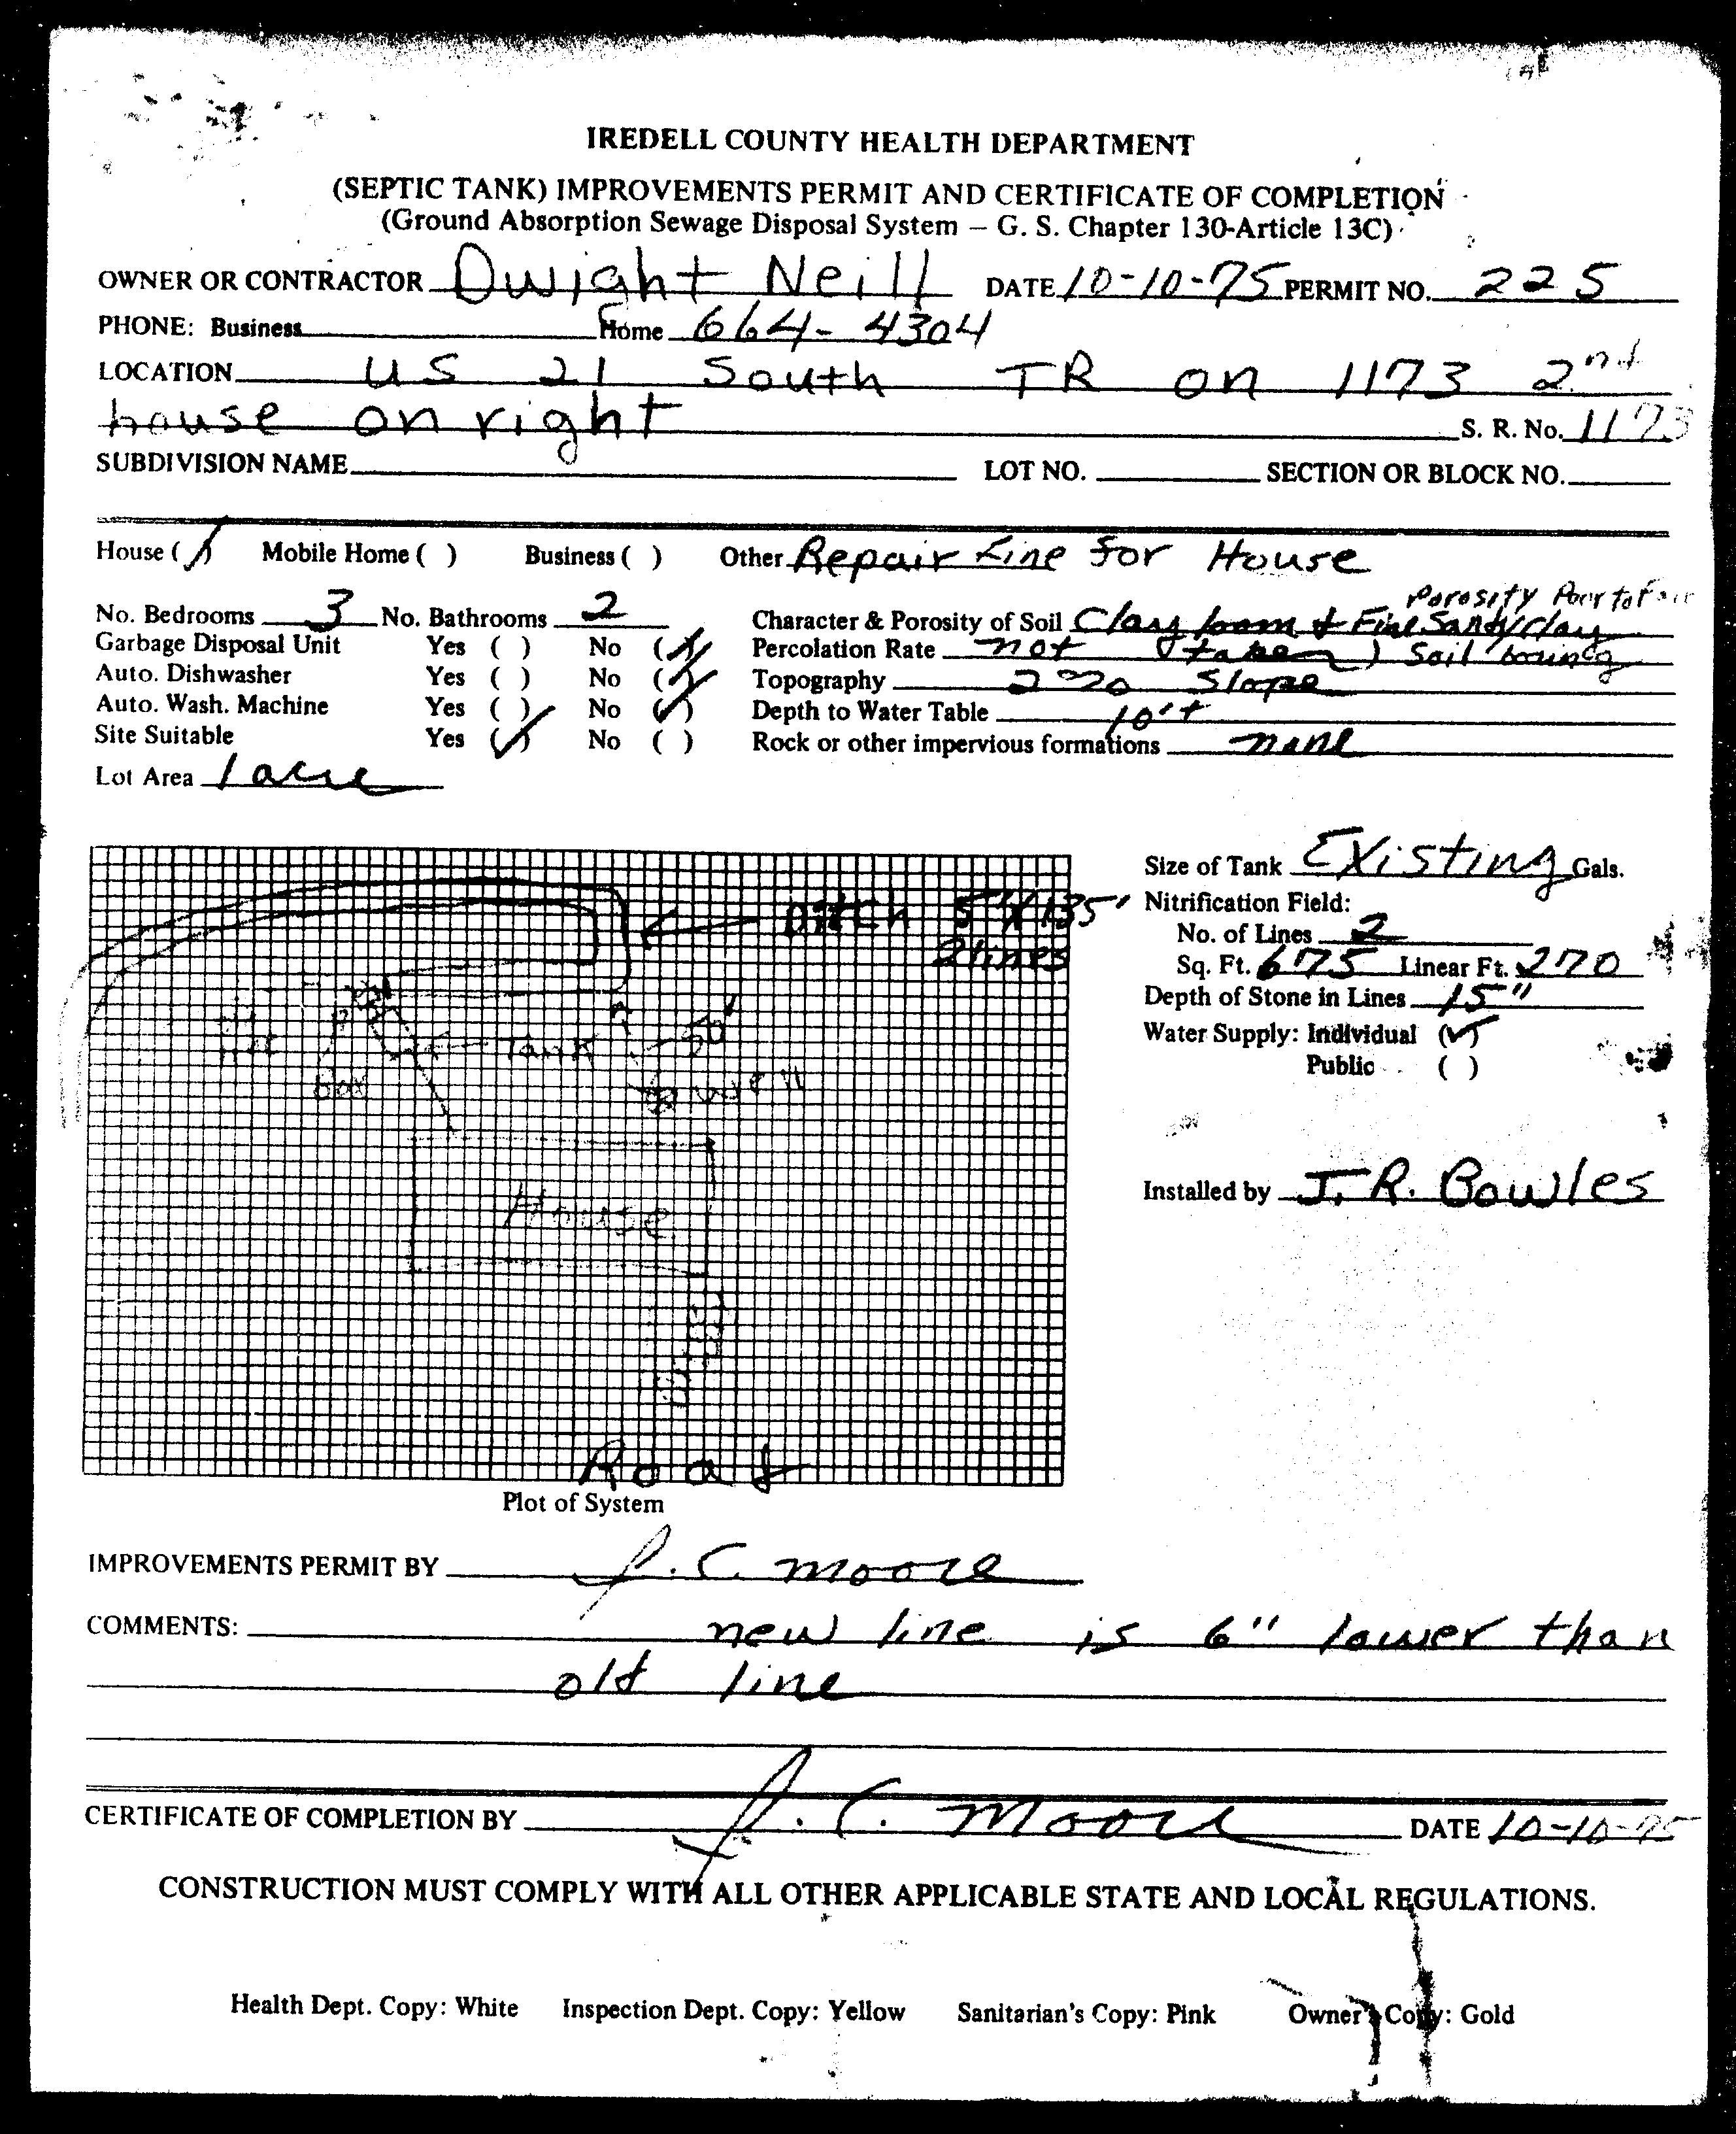 IREDELL COUNTY HEALTH DEPARTMENT
(SEPTIC TANK) IMPROVEMENTS PERMIT AND CERTIFICATE OF COMPLETION
(Ground Absorption Sewage Disposal System – G. S. Chapter 130-Article 13C)
OWNER OR CONTRACTOR Dwight Neill DATE 10-10-75 PERMIT NO. 225
PHONE: Business Home 664-4304
LOCATION US 21 South TR on 1173 2nd
house on right S. R. No. 1173
SUBDIVISION NAME LOT NO. SECTION OR BLOCK NO.
House (✓) Mobile Home ( ) Business ( ) Other Repair Line for House
Porosity Poor to Fair
No. Bedrooms 3 No. Bathrooms 2 Character & Porosity of Soil Clay loam + Fine Sandy Clay
Garbage Disposal Unit Yes ( ) No (✓) Percolation Rate not (taken) Soil boring
Auto. Dishwasher Yes ( ) No (✓) Topography 2% Slope
Auto. Wash. Machine Yes ( ) No (✓) Depth to Water Table 10'+
Site Suitable Yes (✓) No ( ) Rock or other impervious formations none
Lot Area 1 acre
Size of Tank Existing Gals.
Nitrification Field:
No. of Lines 2
Sq. Ft. 675 Linear Ft. 270
Depth of Stone in Lines 15"
Water Supply: Individual (✓)
Public ( )
Installed by J. R. Bowles
Ditch 5' X 135'
2 lines
50'
Tank
Box
well
House
Road
Plot of System
IMPROVEMENTS PERMIT BY J. C. Moore
COMMENTS: new line is 6" lower than
old line
CERTIFICATE OF COMPLETION BY J. C. Moore DATE 10-10-75
CONSTRUCTION MUST COMPLY WITH ALL OTHER APPLICABLE STATE AND LOCAL REGULATIONS.
Health Dept. Copy: White Inspection Dept. Copy: Yellow Sanitarian's Copy: Pink Owner's Copy: Gold